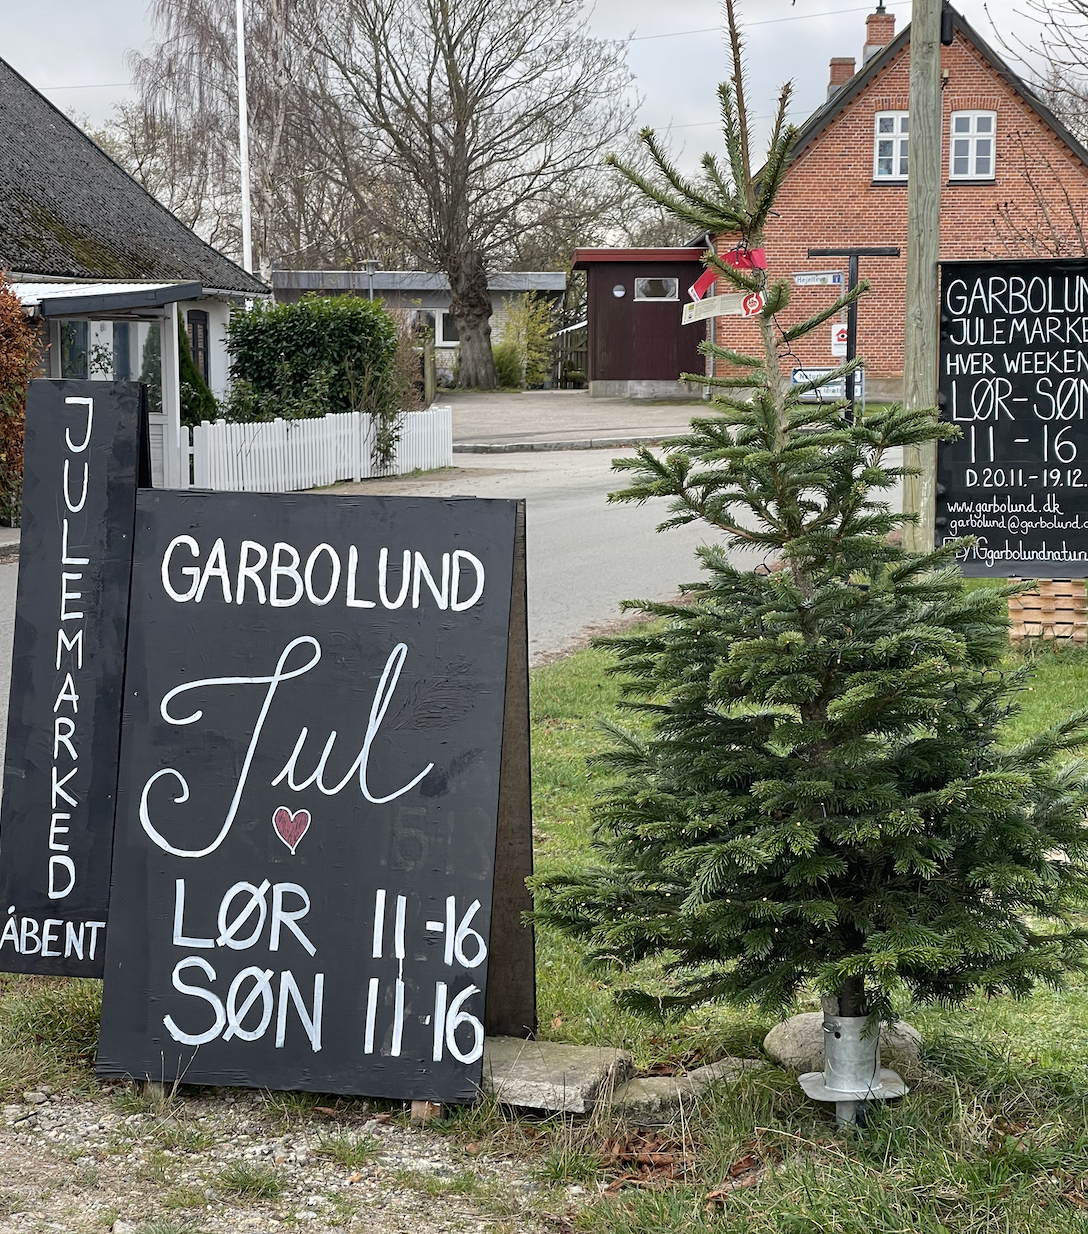 JULEMARKED
ÅBENT
GARBOLUND
Jul
LØR 11-16
SØN 11-16
GARBOLUN
JULEMARKE
HVER WEEKEN
LØR-SØN
11 - 16
D.20.11.-19.12.
www.garbolund.dk
garbolund@garbolund.d
garbolundnatur